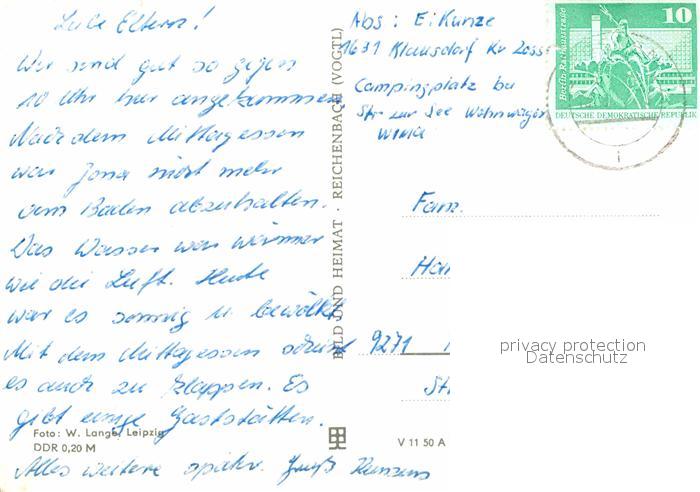 Liebe Eltern!
Wir sind gut so gegen
10 Uhr hier angekommen
Nach dem Mittagessen
war Jona nicht mehr
vom Baden abzuhalten.
Das Wasser war wärmer
wie die Luft. Heute
war es sonnig u. bewölkt
Mit dem Mittagessen scheint
es auch zu klappen. Es
gibt einige Gaststätten.
Alles weitere später. Gruß Kunzens
Foto: W. Lange, Leipzig
DDR 0,20 M
BILD UND HEIMAT · REICHENBACH (VOGTL)
V 11 50 A
Abs: E. Kunze
1631 Klausdorf Kr Zoss
Campingplatz bu
Str zur See Wohnwagen
Fam.
9271
St
10
Berlin, Rathausstraße
DEUTSCHE DEMOKRATISCHE REPUBLIK
privacy protection
Datenschutz